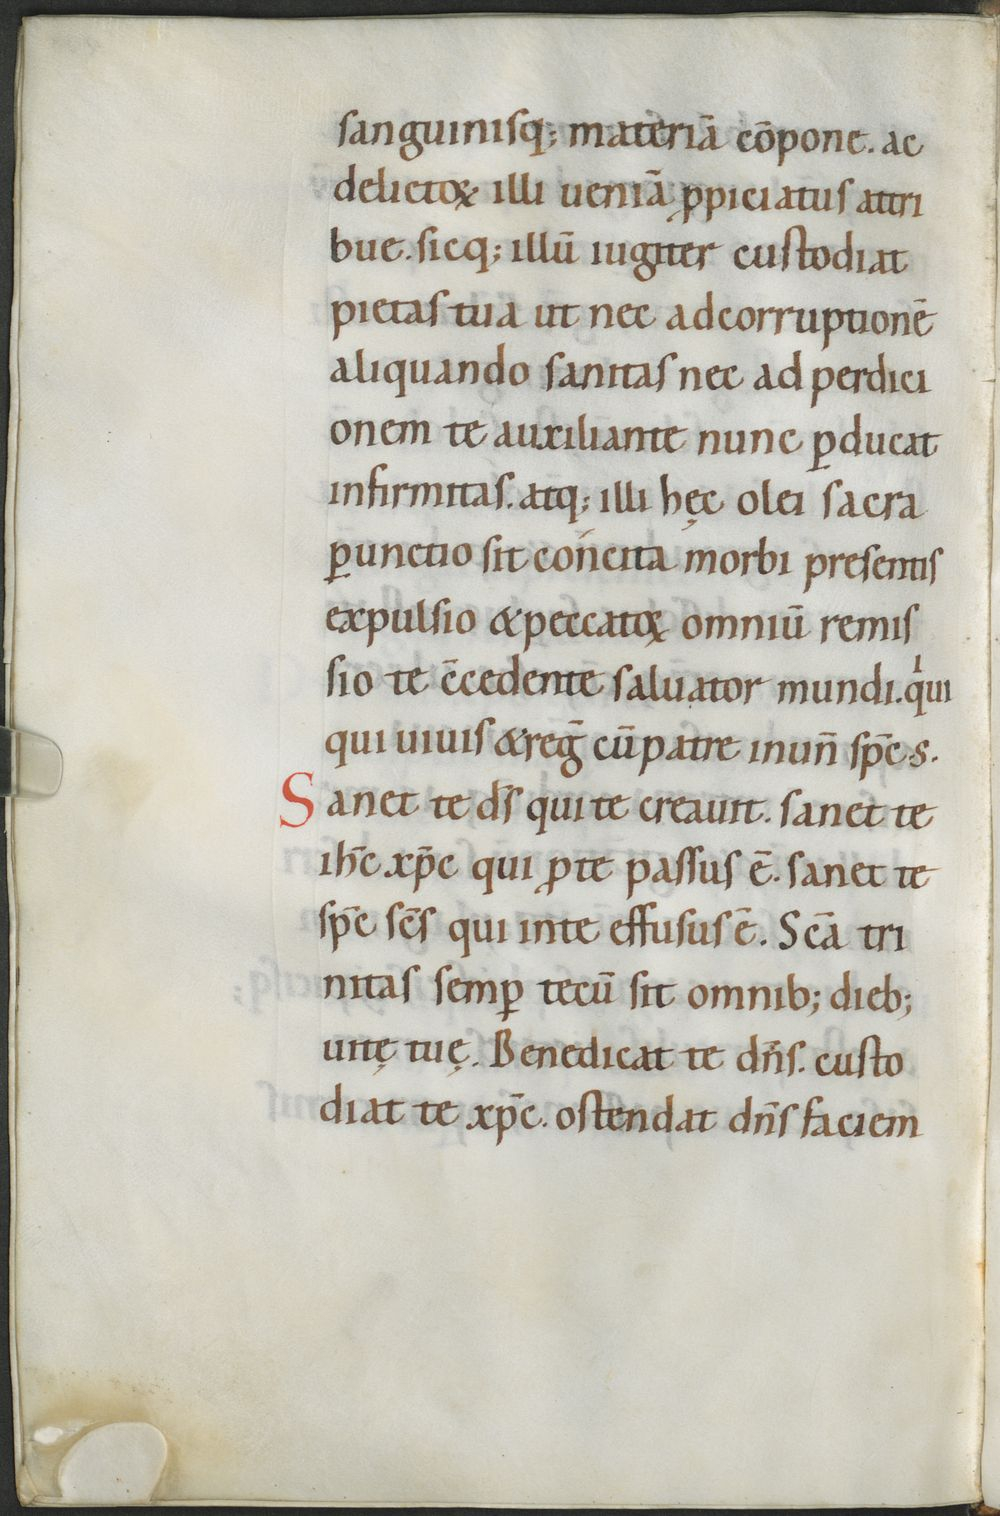 sanguinisq; materiā cōpone. ac
delictoꝝ illi ueniā ꝓpiciatus attri
bue. sicq; illū iugiter custodiat
pietas tua ut nec adcorruptionē
aliquando sanitas nec ad perdici
onem te auxiliante nunc ꝑducat
infirmitas. atq; illi hęc olei sacra
ꝑunctio sit concita morbi presentis
expulsio & peccatoꝝ omniū remis
sio te c̄cedente saluator mundi. qui
qui uiuis & reḡ cū patre inun̄ sp̄c .s.
Sanet te d̄s qui te creauit. sanet te
ih̄c xp̄c qui ꝓte passus ē. sanet te
sp̄c sc̄s qui inte effusus ē. Sc̄a tri
nitas semꝑ tecū sit omnib; dieb;
uitę tuę. Benedicat te dn̄s. custo
diat te xp̄c. ostendat dn̄s faciem